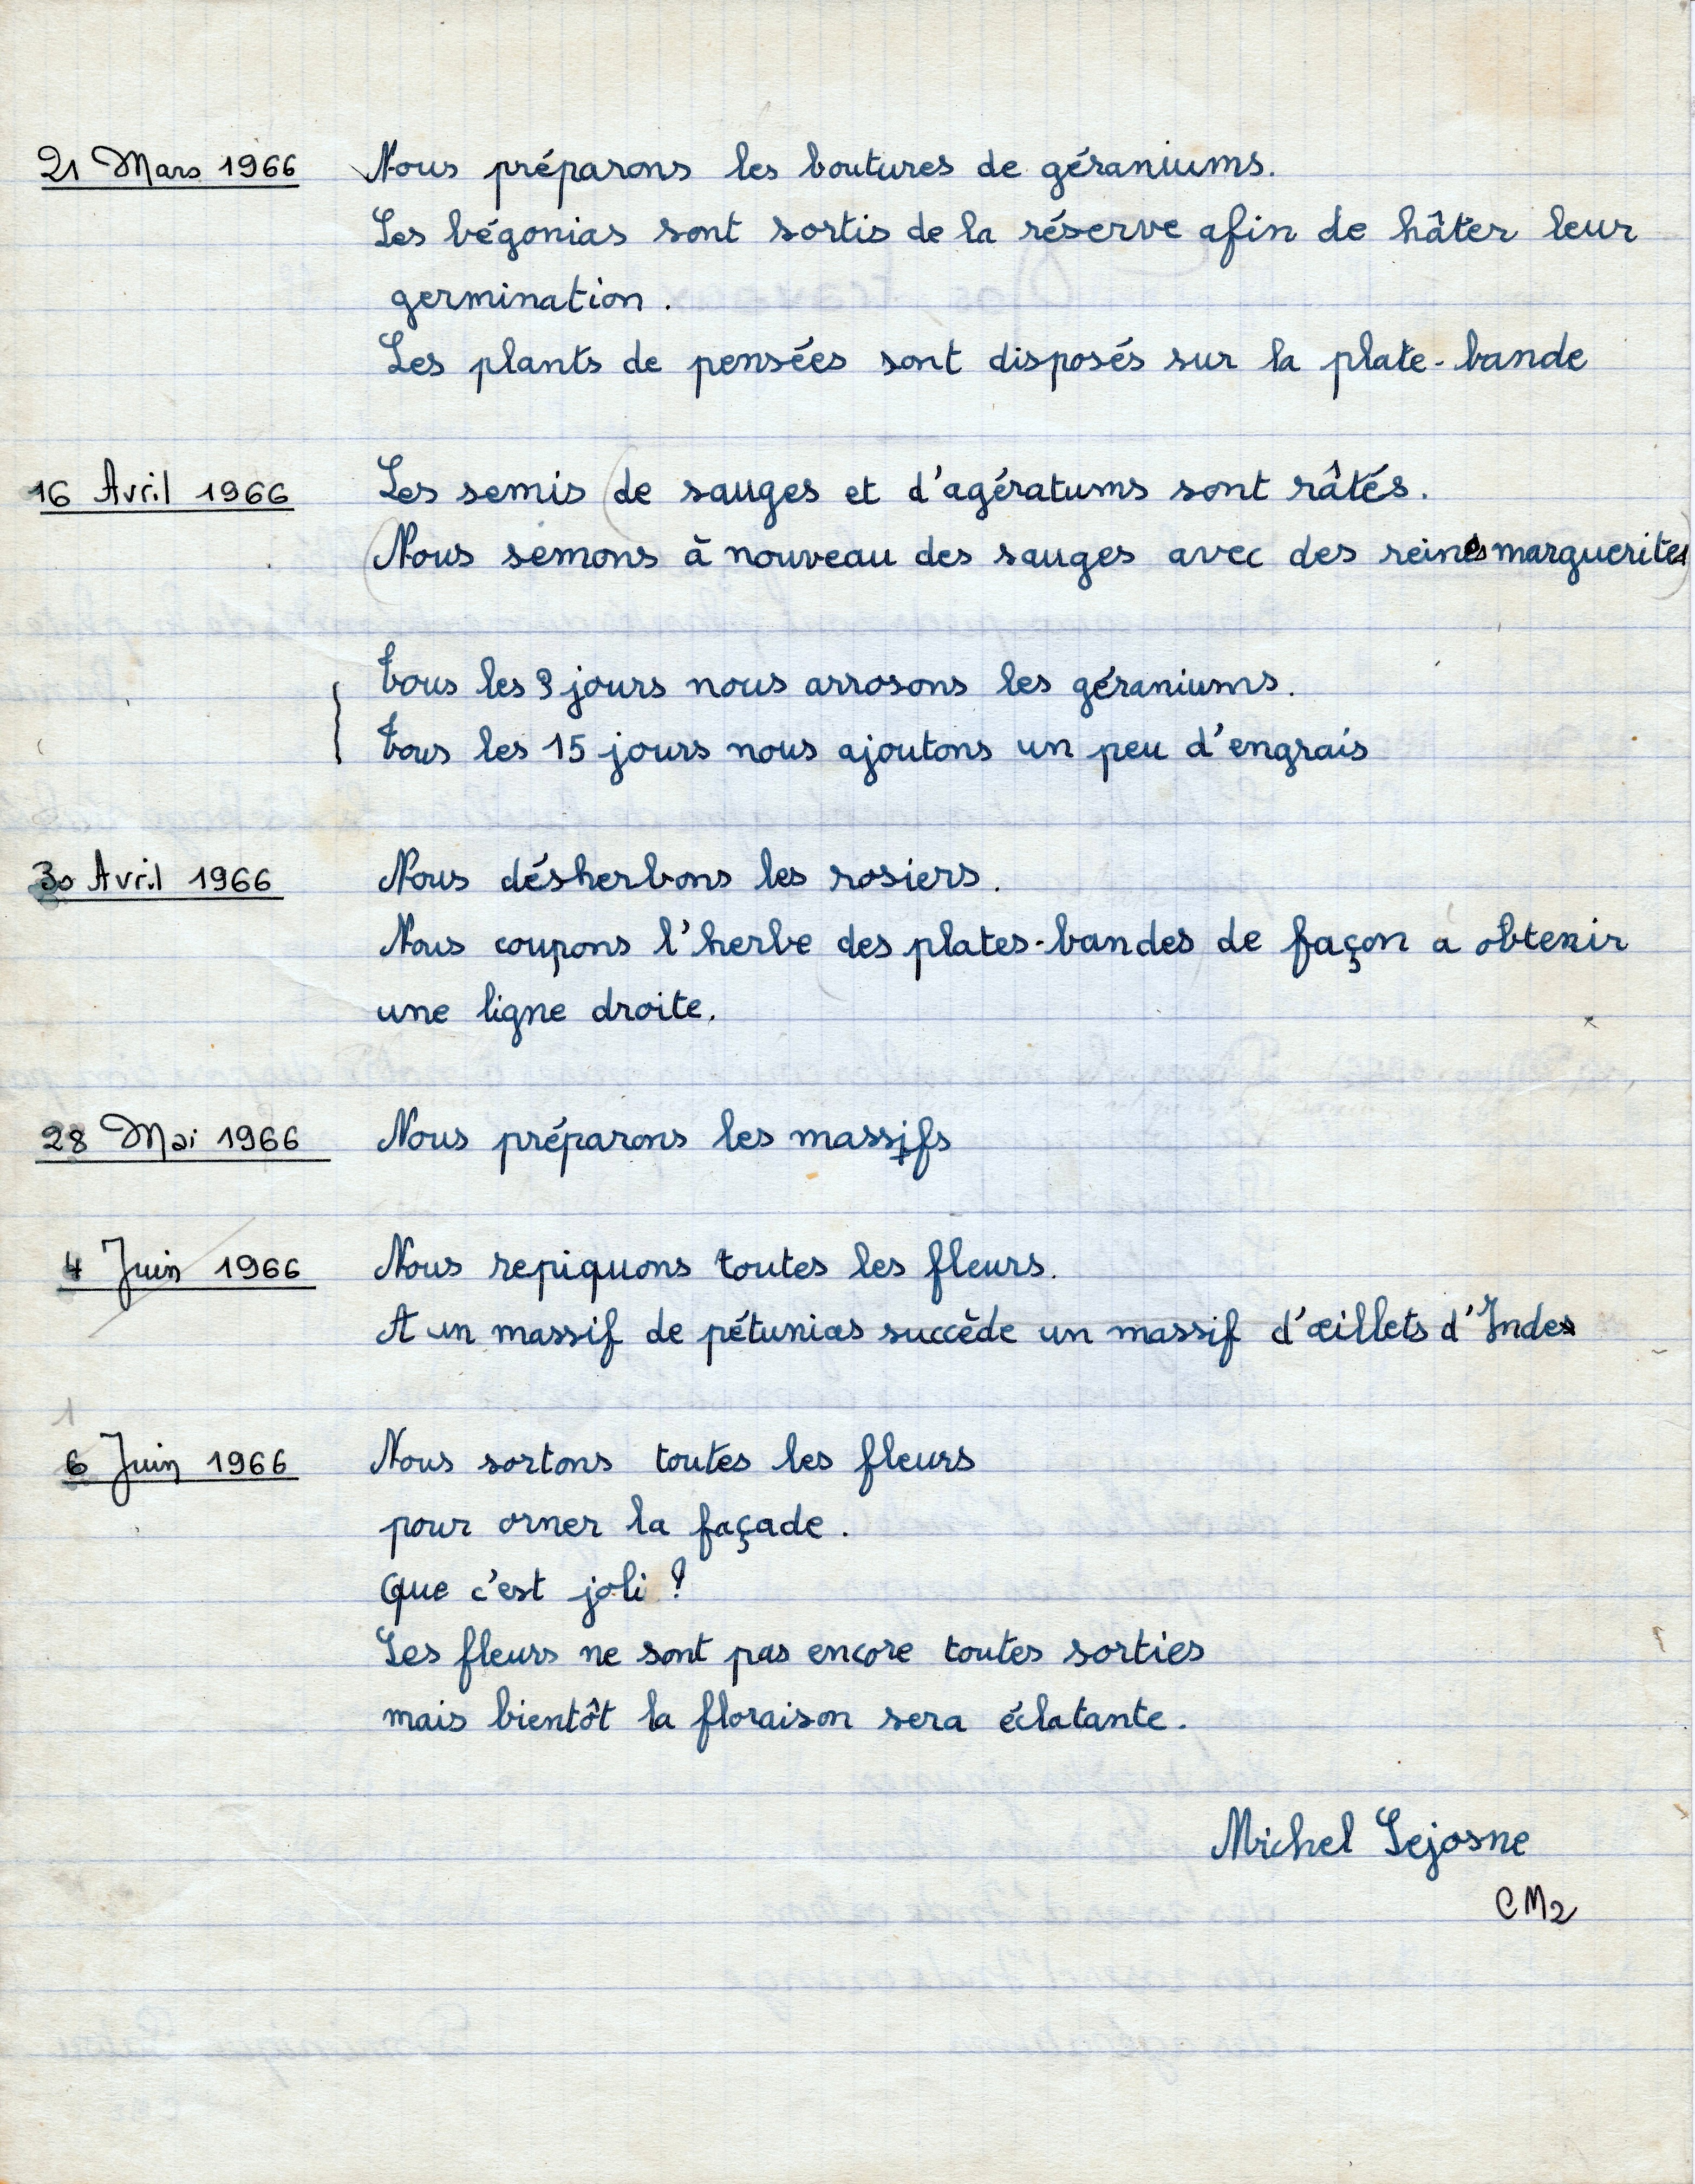 21 Mars 1966 Nous préparons les boutures de géraniums.
Les bégonias sont sortis de la réserve afin de hâter leur
germination.
Les plants de pensées sont disposés sur la plate-bande
16 Avril 1966 Les semis de sauges et d'agératums sont râtés.
Nous semons à nouveau des sauges avec des reines marguerites
Tous les jours nous arrosons les géraniums.
Tous les 15 jours nous ajoutons un peu d'engrais
30 Avril 1966 Nous désherbons les rosiers.
Nous coupons l'herbe des plates-bandes de façon à obtenir
une ligne droite.
28 Mai 1966 Nous préparons les massifs
4 Juin 1966 Nous repiquons toutes les fleurs.
A un massif de pétunias succède un massif d'œillets d'Indes
1
6 Juin 1966 Nous sortons toutes les fleurs
pour orner la façade.
Que c'est joli !
Les fleurs ne sont pas encore toutes sorties
mais bientôt la floraison sera éclatante.
Michel Lejosne
CM2